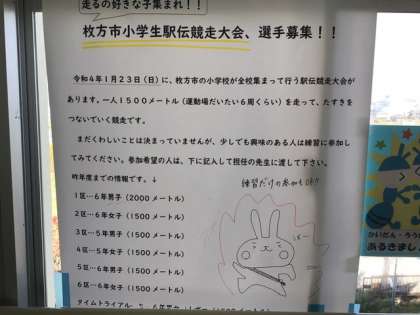 走るの好きな子集まれ！！
枚方市小学生駅伝競走大会、選手募集！！
令和4年1月23日(日)に、枚方市の小学校が全校集まって行う駅伝競走大会が
あります。一人1500メートル(運動場だいたい6周くらい)を走って、たすきを
つないでいく競走です。
まだくわしいことは決まっていませんが、少しでも興味のある人は練習に参加し
てみてください。参加希望の人は、下に記入して担任の先生に渡して下さい。
昨年度までの情報です。↓
練習だけの参加もOK!!
1区…6年男子(2000メートル)
2区…6年女子(1500メートル)
3区…5年男子(1500メートル)
4区…5年女子(1500メートル)
5区…6年男子(1500メートル)
6区…6年女子(1500メートル)
タイムトライアル
かいだん・ろう
あるきまし